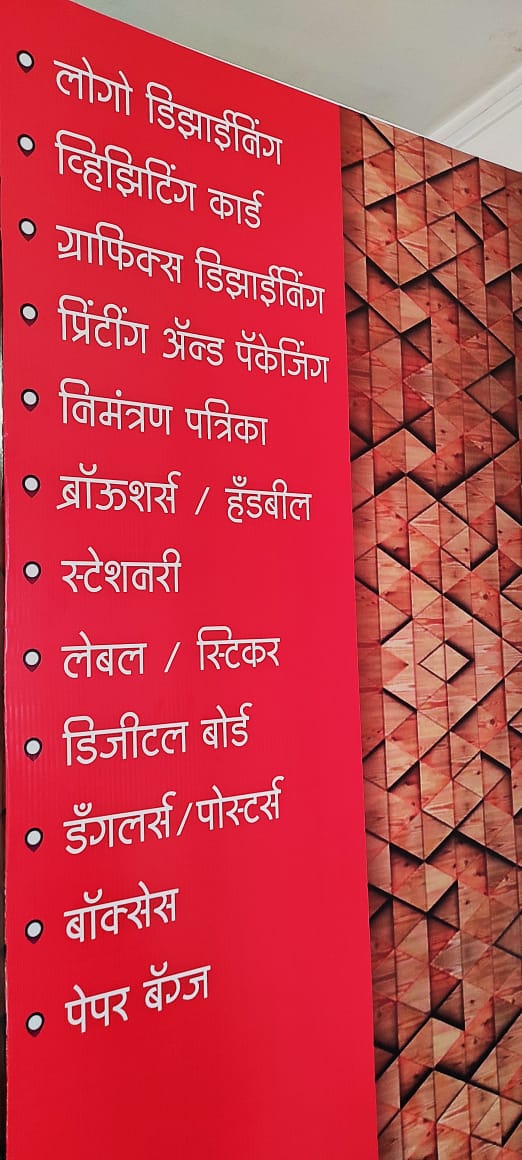 लोगो डिझाईनिंग
व्हिझिटिंग कार्ड
ग्राफिक्स डिझाईनिंग
प्रिंटींग ॲन्ड पॅकेजिंग
निमंत्रण पत्रिका
ब्रॉऊशर्स / हँडबील
स्टेशनरी
लेबल / स्टिकर
डिजीटल बोर्ड
डँगलर्स/पोस्टर्स
बॉक्सेस
पेपर बॅग्ज